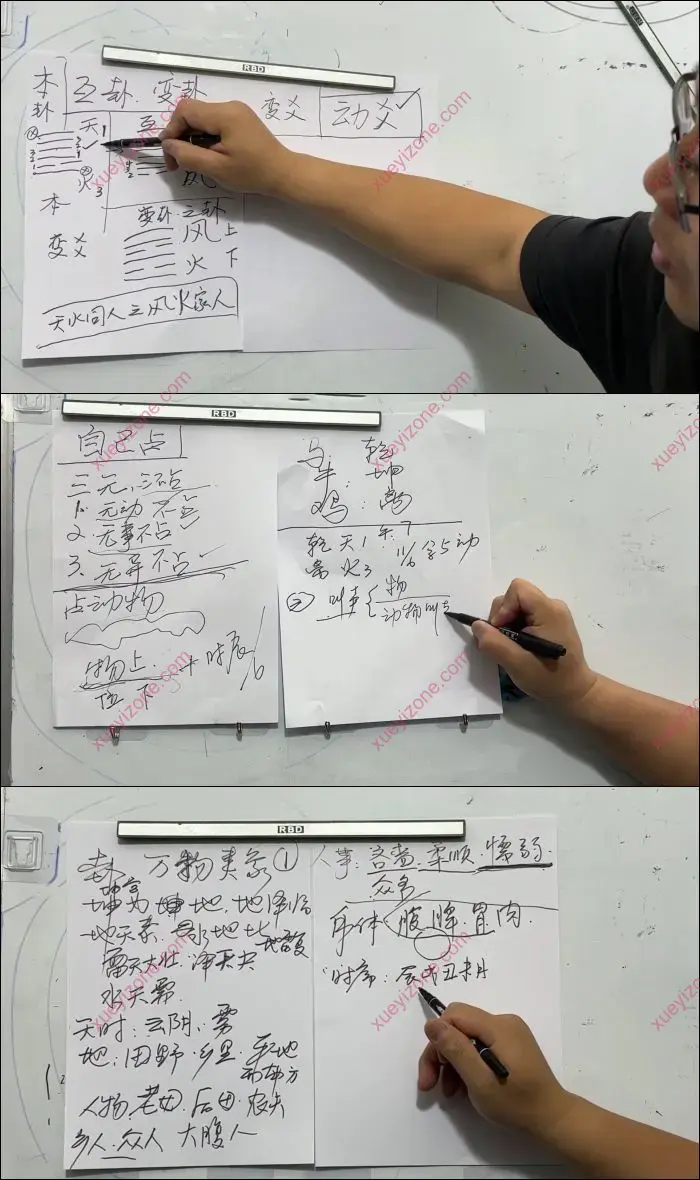 RBD
本卦
互卦.变卦
变爻
动爻
天1
互
火3
风
本
变爻
变卦 之卦
风上
火下
天火同人之风火家人
RBD
自己占
三无,三不占
1.无动不占
2.无事不占
3.无异不占
占动物
物上
位下
+时辰/6
马:乾
牛:坤
鸡
乾天1
火3
②叫声
物
动物叫声
RBD
万物类象①
坤为地.地泽临
地天泰.水地比
雷天大壮.泽天夬
地雷复
水天需
天时:云阴.雾
地:田野.乡里.平地
人物.老母.后母.农夫
乡人.众人 大腹人
人事:吝啬.柔顺.懦弱.
众多
身体:腹脾胃肉.
时序:辰戌丑未月
xueyizone.com